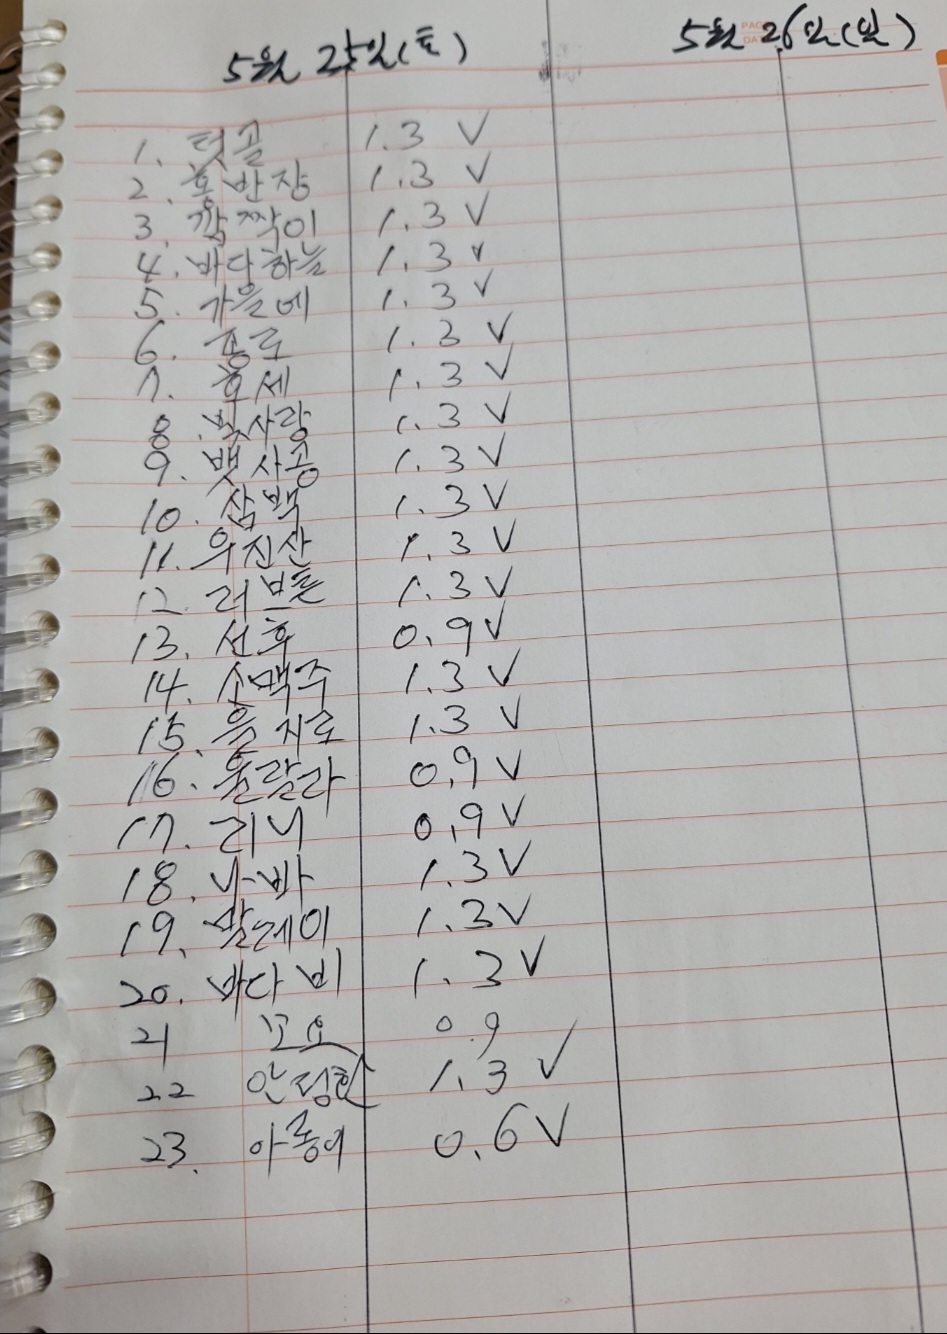 5월 25일(토) 5월 26일(일)
1. 텃골 1.3 V
2. 홍반장 1.3 V
3. 깜짝이 1.3 V
4. 바다하늘 1.3 V
5. 가을에 1.3 V
6. 풍로 1.3 V
7. 호세 1.3 V
8. 빗사랑 1.3 V
9. 뱃사공 1.3 V
10. 삼백 1.3 V
11. 우진산 1.3 V
12. 러브돌 1.3 V
13. 선후 0.9 V
14. 소맥주 1.3 V
15. 을지로 1.3 V
16. 울랄라 0.9 V
17. 리니 0.9 V
18. 나바 1.3 V
19. 말레이 1.3 V
20. 바다비 1.3 V
21 고요 0.9
22 안정환 1.3 V
23. 아롱이 0.6 V